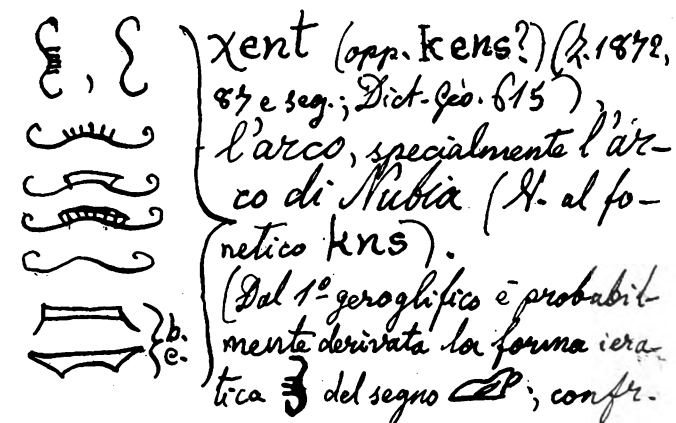 χent (opp. kens?) (Z. 1872,
87 e seg.; Dict. Géo. 615),
l'arco, specialmente l'ar-
co di Nubia (V. al fo-
netico kns).
(Dal 1º geroglifico è probabil-
b. mente derivata la forma iera-
e. tica del segno ; confr.